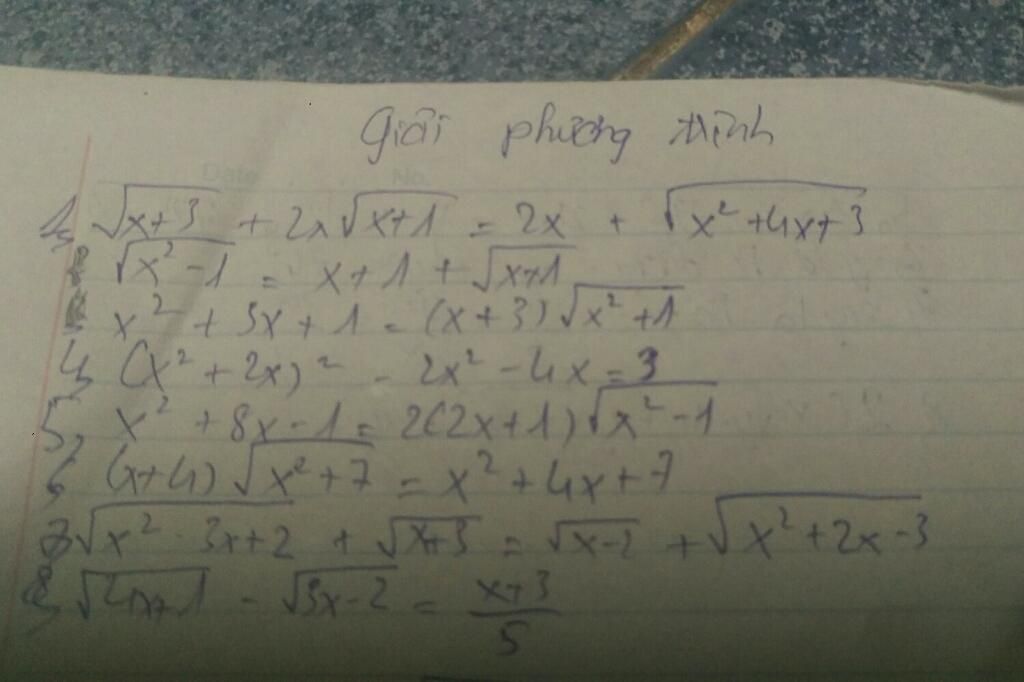 Giải phương trình
1, √(x+3) + 2x√(x+1) = 2x + √(x² + 4x + 3)
√(x² - 1) = x + 1 + √(x+1)
x² + 3x + 1 = (x + 3)√(x² + 1)
4, (x² + 2x)² - 2x² - 4x = 3
5, x² + 8x - 1 = 2(2x + 1)√(x² - 1)
6, (x+4)√(x² + 7) = x² + 4x + 7
7, √(x² - 3x + 2) + √(x+3) = √(x-2) + √(x² + 2x - 3)
8, √(4x+1) - √(3x-2) = (x+3)/5